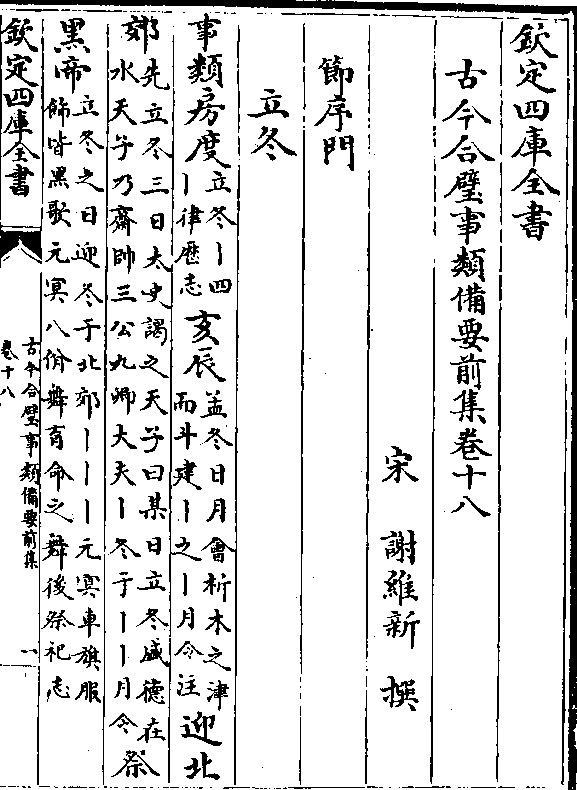 欽定四庫全書
古今合璧事類備要前集卷十八
宋　謝維新　撰
節序門
立冬
事類房度立冬丨四丨律歴志亥辰孟冬日月會析木之津而斗建丨之丨月令注迎北
郊先立冬三日太史謁之天子曰某日立冬盛德在水天子乃齋帥三公九卿大夫丨冬于丨丨月令祭
黑帝立冬之日迎冬于北郊丨丨丨元冥車旗服飾皆黑歌元冥八佾舞育命之舞後祭祀志
欽定四庫全書
古今合璧事類備要前集
卷十八
一